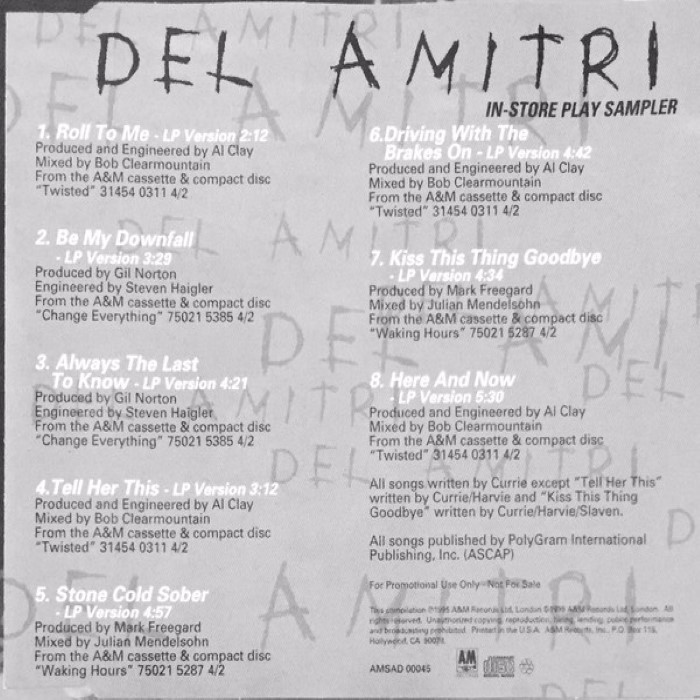 DEL AMITRI
IN-STORE PLAY SAMPLER
1. Roll To Me - LP Version 2:12
Produced and Engineered by Al Clay
Mixed by Bob Clearmountain
From the A&M cassette & compact disc
"Twisted" 31454 0311 4/2
2. Be My Downfall
- LP Version 3:29
Produced by Gil Norton
Engineered by Steven Haigler
From the A&M cassette & compact disc
"Change Everything" 75021 5385 4/2
3. Always The Last
To Know - LP Version 4:21
Produced by Gil Norton
Engineered by Steven Haigler
From the A&M cassette & compact disc
"Change Everything" 75021 5385 4/2
4.Tell Her This - LP Version 3:12
Produced and Engineered by Al Clay
Mixed by Bob Clearmountain
From the A&M cassette & compact disc
"Twisted" 31454 0311 4/2
5. Stone Cold Sober
- LP Version 4:57
Produced by Mark Freegard
Mixed by Julian Mendelsohn
From the A&M cassette & compact disc
"Waking Hours" 75021 5287 4/2
6.Driving With The
Brakes On - LP Version 4:42
Produced and Engineered by Al Clay
Mixed by Bob Clearmountain
From the A&M cassette & compact disc
"Twisted" 31454 0311 4/2
7. Kiss This Thing Goodbye
- LP Version 4:34
Produced by Mark Freegard
Mixed by Julian Mendelsohn
From the A&M cassette & compact disc
"Waking Hours" 75021 5287 4/2
8. Here And Now
- LP Version 5:30
Produced and Engineered by Al Clay
Mixed by Bob Clearmountain
From the A&M cassette & compact disc
"Twisted" 31454 0311 4/2
All songs written by Currie except "Tell Her This"
written by Currie/Harvie and "Kiss This Thing
Goodbye" written by Currie/Harvie/Slaven.
All songs published by PolyGram International
Publishing, Inc. (ASCAP)
For Promotional Use Only - Not For Sale
This compilation ℗1995 A&M Records Ltd, London ©1995 A&M Records Ltd, London. All
rights reserved. Unauthorized copying, reproduction, hiring, lending, public performance
and broadcasting prohibited. Printed in the U.S.A. A&M Records, Inc., P.O. Box 118,
Hollywood, CA 90078
AMSAD 00045
A&M
disc